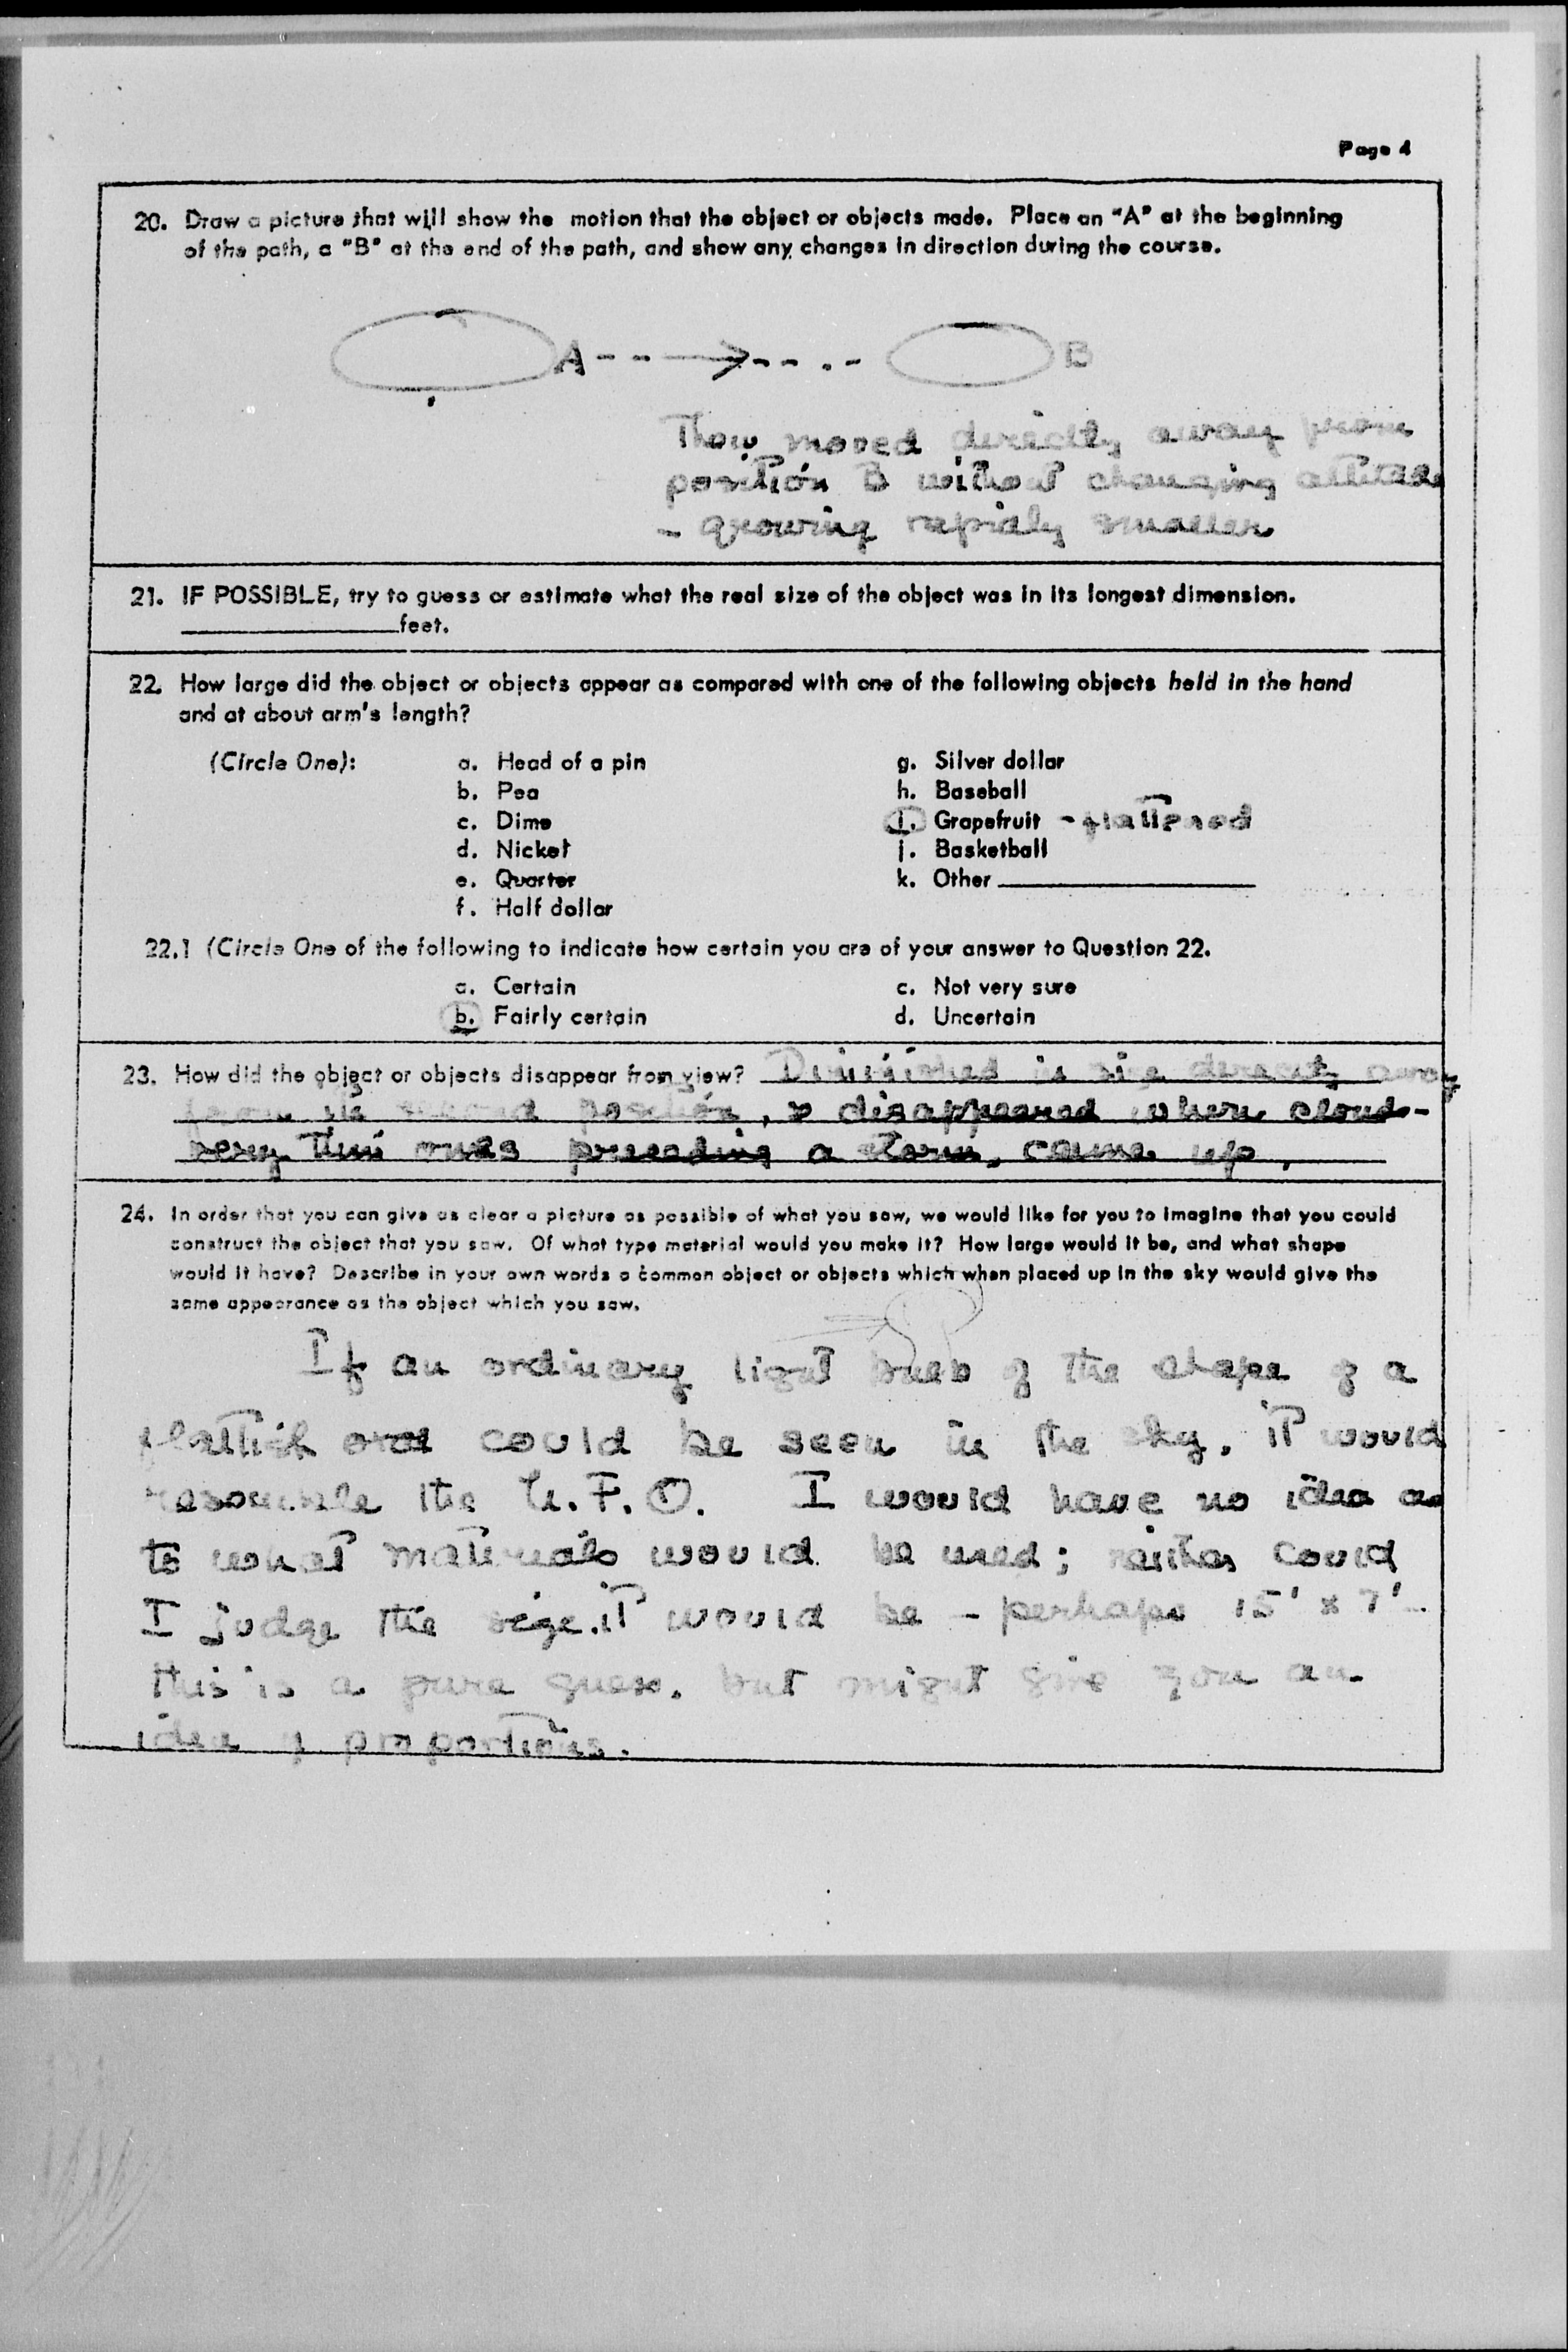 Page 4
20. Draw a picture that will show the motion that the object or objects made. Place an "A" at the beginning
of the path, a "B" at the end of the path, and show any changes in direction during the course.
A B
They moved directly away from
position B without changing altitude
- growing rapidly smaller
21. IF POSSIBLE, try to guess or estimate what the real size of the object was in its longest dimension.
feet.
22. How large did the object or objects appear as compared with one of the following objects held in the hand
and at about arm's length?
(Circle One): a. Head of a pin g. Silver dollar
b. Pea h. Baseball
c. Dime i. Grapefruit - flattened
d. Nickel j. Basketball
e. Quarter k. Other
f. Half dollar
22.1 (Circle One of the following to indicate how certain you are of your answer to Question 22.
a. Certain c. Not very sure
b. Fairly certain d. Uncertain
23. How did the object or objects disappear from view? Diminished in size directly away
from its second position, & disappeared when clouds-
very thin ones preceding a storm, came up.
24. In order that you can give as clear a picture as possible of what you saw, we would like for you to imagine that you could
construct the object that you saw. Of what type material would you make it? How large would it be, and what shape
would it have? Describe in your own words a common object or objects which when placed up in the sky would give the
same appearance as the object which you saw.
If an ordinary light bulb of the shape of a
flattish oval could be seen in the sky, it would
resemble the U.F.O. I would have no idea as
to what materials would be used; neither could
I judge the size it would be - perhaps 15' x 7'-
this is a pure guess, but might give you an
idea of proportions.